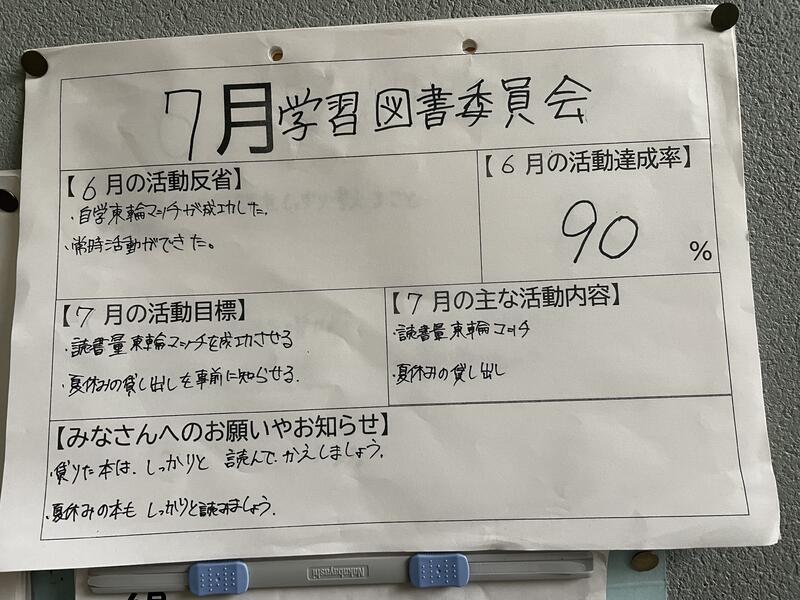 7月学習図書委員会
【6月の活動反省】
・自学東輪マッチが成功した.
・常時活動ができた。
【6月の活動達成率】
90%
【7月の活動目標】
・読書量東輪マッチを成功させる
・夏休みの貸し出しを事前に知らせる.
【7月の主な活動内容】
・読書量東輪マッチ
・夏休みの貸し出し
【みなさんへのお願いやお知らせ】
・貸りた本は、しっかりと読んでかえしましょう.
・夏休みの本もしっかりと読みましょう.
Nakabayashi
6月